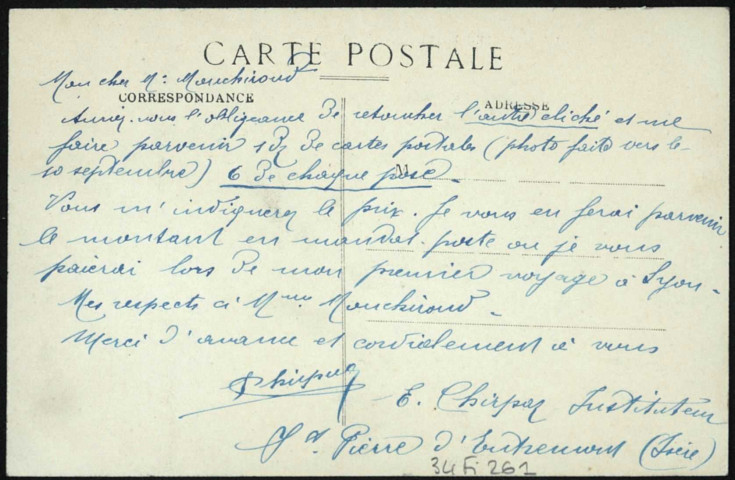 CARTE POSTALE
Mon cher Mr Monchiroud
CORRESPONDANCE
ADRESSE
Auriez-vous l'obligeance de retoucher l'autre cliché et me
faire parvenir 1 Dz de cartes postales (photo faite vers le
10 septembre) 6 de chaque pose.
M
Vous m'indiquerez le prix. Je vous en ferai parvenir
le montant en mandat-poste ou je vous
paierai lors de mon premier voyage à Lyon.
Mes respects à Mme Monchiroud.
Merci d'avance et cordialement à vous
Chirpaz
E. Chirpaz Instituteur
St Pierre d'Entremont (Isère)
34 Fi 261